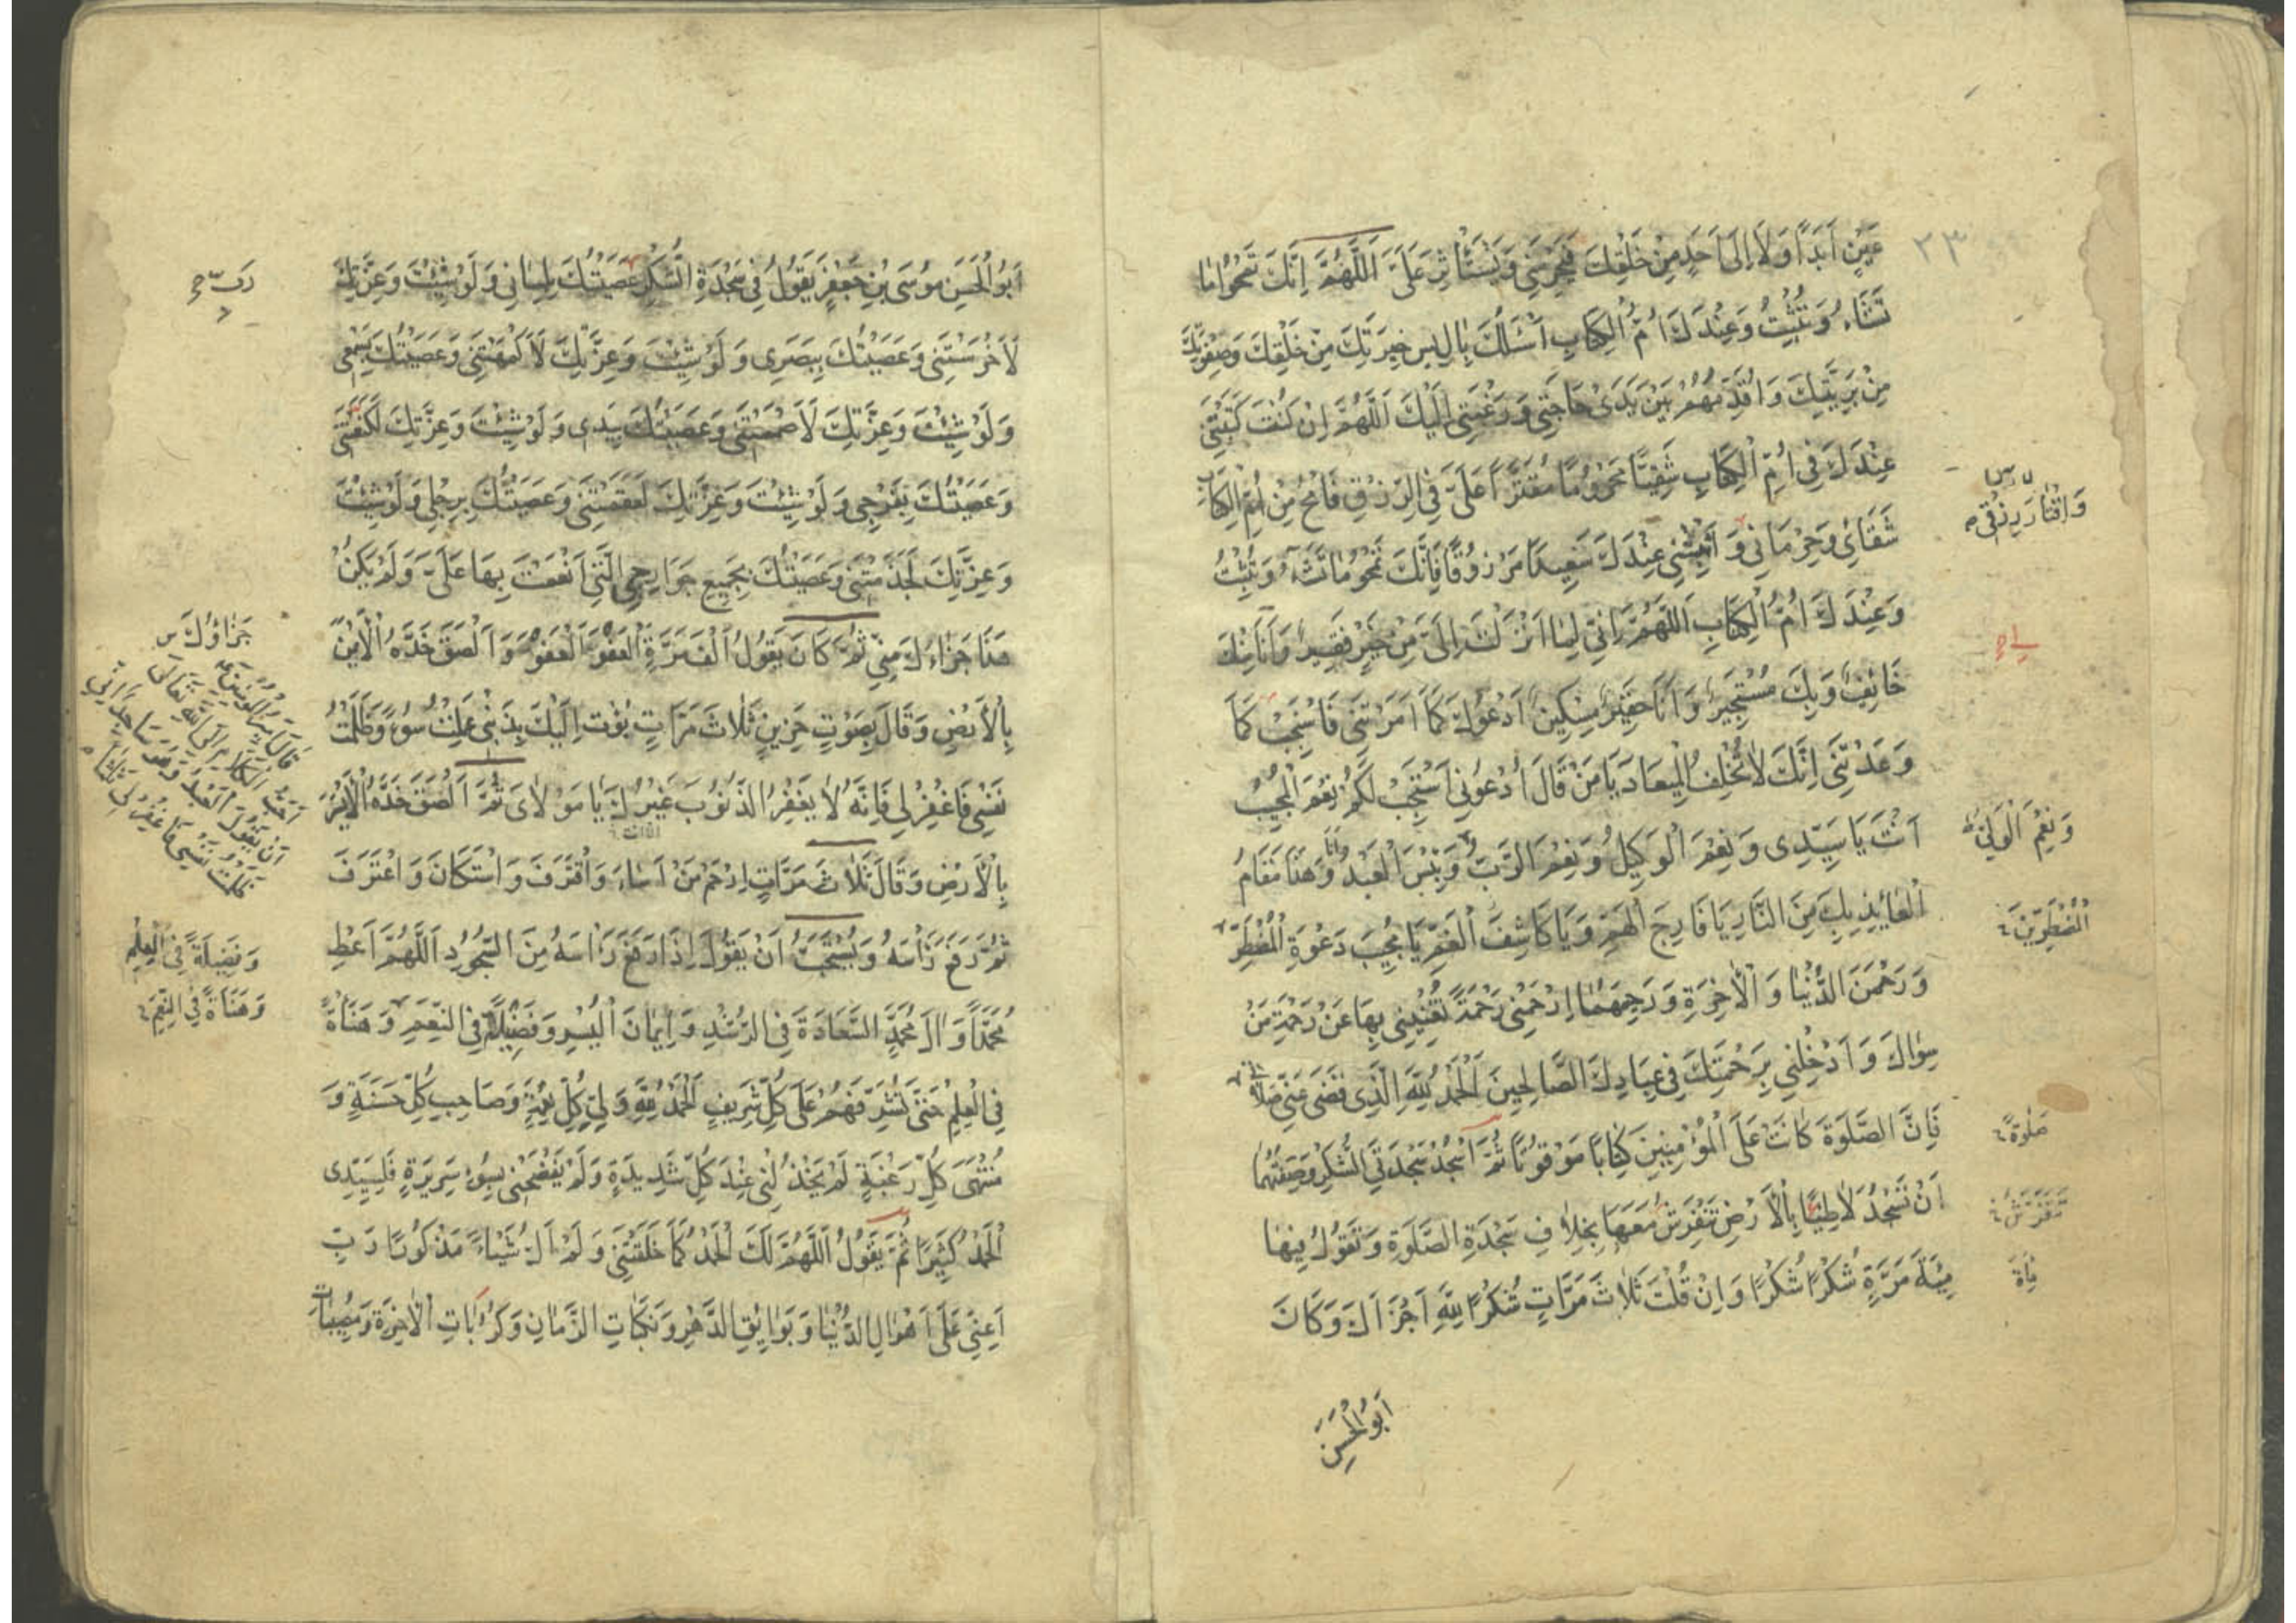 ٢٣
عَيْنٍ اَبَدًا وَلَا اِلىٰ اَحَدٍ مِنْ خَلْقِكَ فَيَحْرِمَنى وَيَسْتَأْثِرَ عَلَىَّ اَللّٰهُمَّ اِنَّكَ تَمْحُوا مَا
تَشَاءُ وَتُثْبِتُ وَعِنْدَكَ اُمُّ الْكِتَابِ اَسْاَلُكَ بِآلِ يٰس خِيَرَتِكَ مِنْ خَلْقِكَ وَصِفْوَتِكَ
مِنْ بَرِيَّتِكَ وَاُقَدِّمُهُمْ بَيْنَ يَدَىْ حَاجَتى وَرَغْبَتى اِلَيْكَ اَللّٰهُمَّ اِنْ كُنْتَ كَتَبْتَنى
عِنْدَكَ فى اُمِّ الْكِتَابِ شَقِيًّا مَحْرُومًا مُقَتَّرًا عَلَىَّ فِى الرِّزْقِ فَامْحُ مِنْ اُمِّ الْكِتَابِ
شَقَائى وَحِرْمَانى وَاَثْبِتْنى عِنْدَكَ سَعِيدًا مَرْزُوقًا فَاِنَّكَ تَمْحُو مَا تَشَاءُ وَتُثْبِتُ
وَعِنْدَكَ اُمُّ الْكِتَابِ اَللّٰهُمَّ اِنّى لِمَا اَنْزَلْتَ اِلَىَّ مِنْ خَيْرٍ فَقِيرٌ وَاَنَا مِنْكَ
خَائِفٌ وَبِكَ مُسْتَجِيرٌ وَاَنَا حَقِيرٌ مِسْكِينٌ اَدْعُوكَ كَمَا اَمَرْتَنى فَاسْتَجِبْ كَمَا
وَعَدْتَنى اِنَّكَ لَا تُخْلِفُ الْمِيعَادَ يَا مَنْ قَالَ اُدْعُونى اَسْتَجِبْ لَكُمْ نِعْمَ الْمُجِيبُ
اَنْتَ يَا سَيِّدى وَنِعْمَ الْوَكِيلُ وَنِعْمَ الرَّبُّ وَبِئْسَ الْعَبْدُ اَنَا وَهٰذَا مَقَامُ
الْعَائِذِ بِكَ مِنَ النَّارِ يَا فَارِجَ الْهَمِّ وَيَا كَاشِفَ الْغَمِّ يَا مُجِيبَ دَعْوَةِ الْمُضْطَرِّ
وَرَحْمٰنَ الدُّنْيَا وَالْاٰخِرَةِ وَرَحِيمَهُمَا اِرْحَمْنى رَحْمَةً تُغْنِينى بِهَا عَنْ رَحْمَةِ مَنْ
سِوَاكَ وَاَدْخِلْنى بِرَحْمَتِكَ فى عِبَادِكَ الصَّالِحِينَ اَلْحَمْدُ لِلّٰهِ الَّذى قَضٰى عَنّى صَلَاتى
فَاِنَّ الصَّلٰوةَ كَانَتْ عَلَى الْمُؤْمِنِينَ كِتَابًا مَوْقُوتًا ثُمَّ اسْجُدْ سَجْدَتَىِ الشُّكْرِ وَصِفَتُهُمَا
اَنْ تَسْجُدَ لَاطِئًا بِالْاَرْضِ تَفْتَرِشُ مَعَهَا بِخِلَافِ سَجْدَةِ الصَّلٰوةِ وَتَقُولُ فِيهَا
مِئَةَ مَرَّةٍ شُكْرًا شُكْرًا وَاِنْ قُلْتَ ثَلَاثَ مَرَّاتٍ شُكْرًا لِلّٰهِ اَجْزَاَكَ وَكَانَ
اَبُو الْحَسَنِ
وَاِقْتَارَ رِزْقى
وَنِعْمَ الْوَلِىُّ
الْمُضْطَرِّينَ
صَلٰوةً
مِاَةَ
اَبُو الْحَسَنِ مُوسَى بْنُ جَعْفَرٍ يَقُولُ فى سَجْدَةِ الشُّكْرِ عَصَيْتُكَ بِلِسَانى وَلَوْ شِئْتَ وَعِزَّتِكَ
لَاَخْرَسْتَنى وَعَصَيْتُكَ بِبَصَرى وَلَوْ شِئْتَ وَعِزَّتِكَ لَاَكْمَهْتَنى وَعَصَيْتُكَ بِسَمْعى
وَلَوْ شِئْتَ وَعِزَّتِكَ لَاَصْمَمْتَنى وَعَصَيْتُكَ بِيَدى وَلَوْ شِئْتَ وَعِزَّتِكَ لَكَنَّعْتَنى
وَعَصَيْتُكَ بِفَرْجى وَلَوْ شِئْتَ وَعِزَّتِكَ لَعَقَمْتَنى وَعَصَيْتُكَ بِرِجْلى وَلَوْ شِئْتَ
وَعِزَّتِكَ لَجَذَمْتَنى وَعَصَيْتُكَ بِجَمِيعِ جَوَارِحِى الَّتى اَنْعَمْتَ بِهَا عَلَىَّ وَلَمْ يَكُنْ
هٰذَا جَزَاءَكَ مِنّى ثُمَّ كَانَ يَقُولُ اَلْفَ مَرَّةٍ اَلْعَفْوَ اَلْعَفْوَ وَاَلْصَقَ خَدَّهُ الْاَيْمَنَ
بِالْاَرْضِ وَقَالَ بِصَوْتٍ حَزِينٍ ثَلَاثَ مَرَّاتٍ بُؤْتُ اِلَيْكَ بِذَنْبى عَمِلْتُ سُوءً وَظَلَمْتُ
نَفْسى فَاغْفِرْ لى فَاِنَّهُ لَا يَغْفِرُ الذُّنُوبَ غَيْرُكَ يَا مَوْلَاىَ ثُمَّ اَلْصَقَ خَدَّهُ الْاَيْسَرَ
بِالْاَرْضِ وَقَالَ ثَلَاثَ مَرَّاتٍ اِرْحَمْ مَنْ اَسَاءَ وَاقْتَرَفَ وَاسْتَكَانَ وَاعْتَرَفَ
ثُمَّ رَفَعَ رَأْسَهُ وَيُسْتَحَبُّ اَنْ يَقُولَ اِذَا رَفَعَ رَأْسَهُ مِنَ السُّجُودِ اَللّٰهُمَّ اَعْطِ
مُحَمَّدًا وَاٰلَ مُحَمَّدٍ السَّعَادَةَ فِى الرُّشْدِ وَاِيمَانَ الْيُسْرِ وَفَضِيلَةً فِى النِّعَمِ وَهَنَاءَةً
فِى الْعِلْمِ حَتّٰى تُشَرِّفَهُمْ عَلٰى كُلِّ شَرِيفٍ اَلْحَمْدُ لِلّٰهِ وَلِىِّ كُلِّ نِعْمَةٍ وَصَاحِبِ كُلِّ حَسَنَةٍ وَ
مُنْتَهٰى كُلِّ رَغْبَةٍ لَمْ يَخْذُلْنى عِنْدَ كُلِّ شَدِيدَةٍ وَلَمْ يَفْضَحْنى بِسُوءِ سَرِيرَةٍ فَلِسَيِّدى
الْحَمْدُ كَثِيرًا ثُمَّ يَقُولُ اَللّٰهُمَّ لَكَ الْحَمْدُ كَمَا خَلَقْتَنى وَلَمْ اَكُ شَيْئًا مَذْكُورًا رَبِّ
اَعِنّى عَلٰى اَهْوَالِ الدُّنْيَا وَبَوَائِقِ الدَّهْرِ وَنَكَبَاتِ الزَّمَانِ وَكُرُبَاتِ الْاٰخِرَةِ وَمُصِيبَاتِ
جَزَاؤُكَ
وَفَضِيلَةً فِى الْعِلْمِ
وَهَنَاءَةً فِى النِّعَمِ